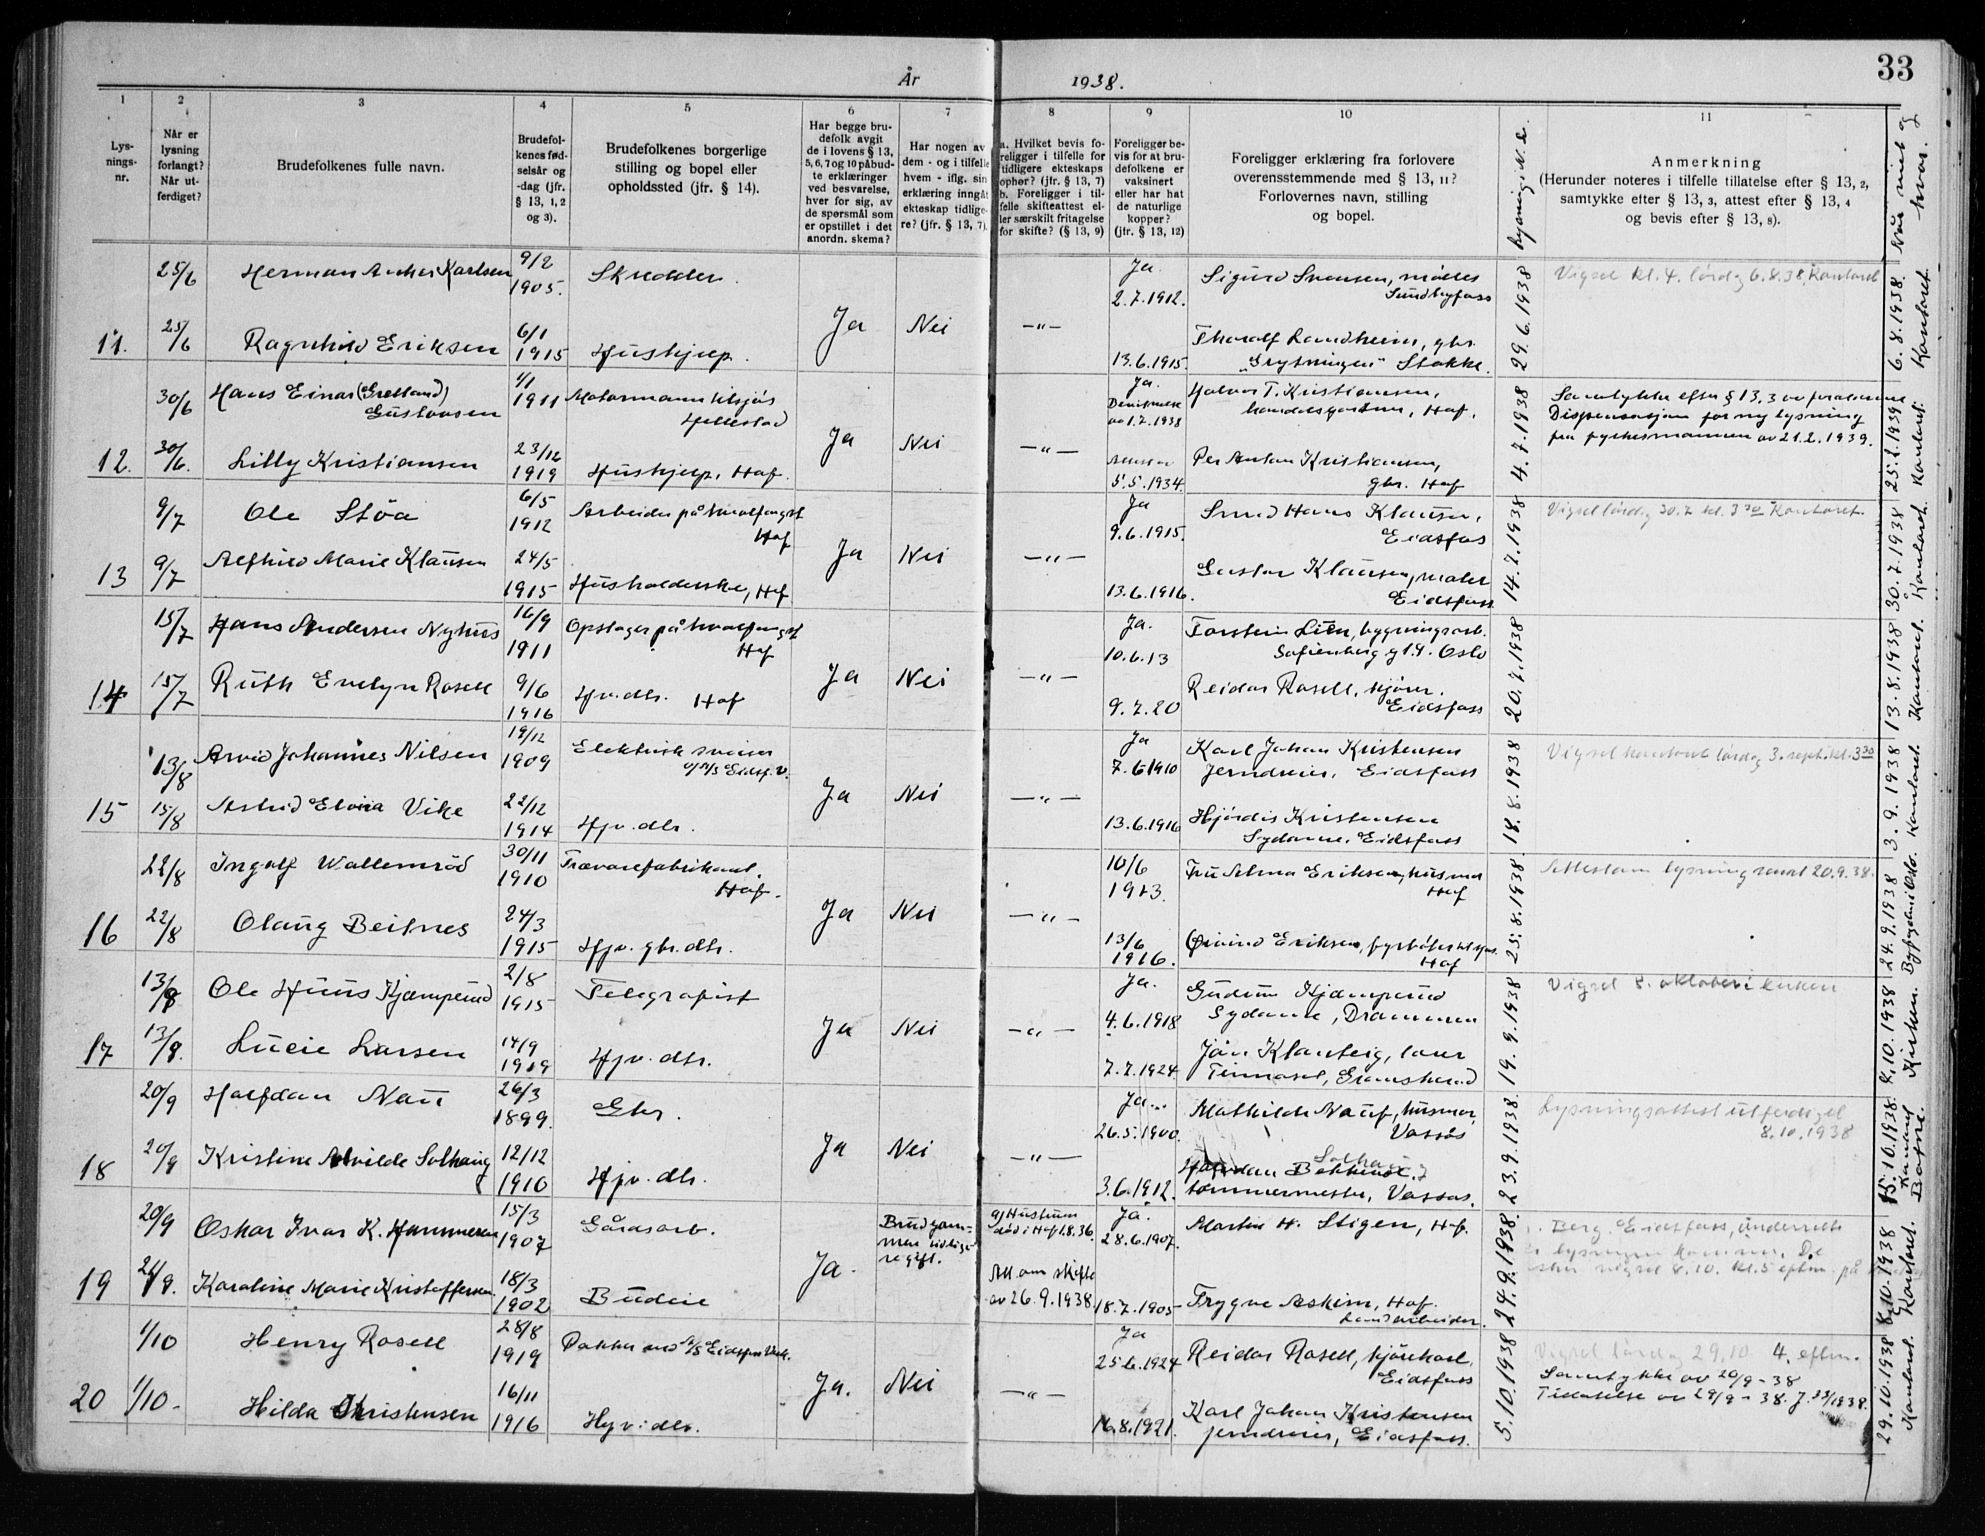 33
År 1938.
1 2 3 4 5 6 7 8 9 10 11
Lys-
nings-
nr.
Når er
lysning
forlangt?
Når ut-
ferdiget?
Brudefolkenes fulle navn.
Brudefol-
kenes fød-
selsår og
-dag (jfr.
§ 13, 1, 2
og 3).
Brudefolkenes borgerlige
stilling og bopel eller
opholdssted (jfr. § 14).
Har begge bru-
defolk avgit
de i lovens § 13,
5, 6, 7 og 10 påbud-
te erklæringer
ved besvarelse,
hver for sig, av
de spørsmål som
er opstillet i det
anordn. skema?
Har nogen av
dem - og i tilfelle
hvem - iflg. sin
erklæring inngått
ekteskap tidlige-
re? (jfr. § 13, 7).
a. Hvilket bevis fo-
religger i tilfelle for
tidligere ekteskaps
ophør? (jfr. § 13, 7)
b. Foreligger i til-
felle skifteattest el-
ler særskilt fritagelse
for skifte? (§ 13, 9)
Foreligger be-
vis for at bru-
defolkene er
vaksinert
eller har hat
de naturlige
kopper?
(jfr. § 13, 12)
Foreligger erklæring fra forlovere
overensstemmende med § 13, 11?
Forlovernes navn, stilling
og bopel.
Anmerkning
(Herunder noteres i tilfelle tillatelse efter § 13, 2,
samtykke efter § 13, 3, attest efter § 13, 4
og bevis efter § 13, 8).
Når viet og hvor.
25/6 Herman Anker Karlsen 9/2 1905. Skredder. Ja. 2.7.1912. Sigurd Svensen, Sundbyfoss 29.6.1938 Vigsel kl. 4. lørdag 6.8.38, Kontoret 6.8.1938. Kontoret.
11. 25/6 Ragnhild Eriksen 6/1 1915 Hushjelp. Ja Nei —"— 13.6.1915. Thoralf Landheim, gbr. "Grytningen" Stokke.
30/6 Hans Einar (Grelland) Gustavsen 1/1 1911 Motormann tilsjøs Hillestad Ja. 1.7.1938 Halvor T. Kristiansen, handelsgartner, Hof. 4.7.1938 Samtykke efter § 13,3 av foreldrene
Dispensasjon for ny lysning
fra fylkesmannen av 21.2.1939. 25.2.1939 Kontoret.
12. 30/6. Lilly Kristiansen 23/12 1919 Hushjelp, Hof. Ja Nei —"— 5.5.1934. Per Anton Kristiansen, gbr. Hof
9/7 Ole Stöa 6/5 1912 Arbeider på hvalfangst Hof Ja 9.6.1915. Smed Hans Klausen, Eidsfos 14.7.1938 Vigsel lördag 30.7 kl. 3 30 Kontoret. 30.7.1938 Kontoret.
13 9/7 Alfhild Marie Klausen 24/5 1915 Husholderske, Hof Ja Nei —"— 13.6.1916. Gustav Klausen, maler Eidsfoss
15/7 Hans Andersen Nyhus 16/9 1911 Opslager på hvalfangst Hof Ja. 10.6.13 Torstein Lien, bygningsarb. Sofienberg g 14. Oslo 20.7.1938 13.8.1938 Kontoret.
14 15/7 Ruth Evelyn Rosell 9/6 1916 Hjv. dtr. Hof Ja Nei —"— 9.7.20 Reidar Rosell, kjörer. Eidsfoss
13/8 Arvid Johannes Nilsen 19/12 1909 Elektrisk sveiser A/S Eidsf. V. Ja 7.6.1910 Karl Johan Kristensen Jerndreier, Eidsfoss 18.8.1938 Vigsel kontoret lördag 3. sept. kl. 3 30 3.9.1938 Kontoret.
15 15/8 Astrid Elvira Vike 22/12 1914 Hjv. dtr. Ja Nei —"— 13.6.1916 Hjördis Kristensen Sydame, Eidsfoss
22/8 Ingolf Wallemröd 30/11 1910 Trævarefabrikant. Hof. 10/6 1913. Fru Alma Eriksen, husmor Hof 25.8.1938. Attest om lysning sendt 20.9.38. 24.9.1938 Byfogden i Oslo.
16 22/8 Olaug Beitnes 24/3 1915 Hjv. gbr. dtr. Ja Nei —"— 13/6 1916. Øivind Eriksen, fyrböter til sjøs. Hof
13/9 Ole Huus Kjæmperud 2/8 1915 Telegrafist Ja. 4.6.1918 Gudrun Kjæmperud Sydame, Drammen 19.9.1938 Vigsel 8. oktober i kirken 8.10.1938 Kirken.
17 13/9. Lucie Larsen 14/9 1919 Hjv. dtr. Ja Nei —"— 7.7.1924. Jön Klanteig, lærer
20/9 Halfdan Nauf 26/3 1899. Gbr. Ja. 26.5.1900. Mathilde Nauf, husmor, Vassås 23.9.1938. Lysningsattest utferdiget
8.10.1938 15.10.1938. Botne.
18 20/9 Kristine Alvilde Solhaug 12/12 1910 Hjv. dtr. Ja Nei —"— 3.6.1912. Halfdan Solhaug, tömmermester, Vassås.
20/9 Oskar Ivar K. Hammeren 15/3 1907 Gårdsarb. Brudgom-
men tidlige-
re gift. a/ Hustrum
död i Hof 1.8.36. Ja. 28.6.1907. Martin H. Stigen, Hof. 24.9.1938. Berg. Eidsfoss, underrette
8.10. kl. 5 eftm. på 8.10.1938 Kontoret.
19 21/9. Karoline Marie Kristoffersen 18/3 1902 Budeie Ja. Att. om skifte
av 26.9.1938. 18.7.1905 Trygve Askim, Hof. Landarbeider.
1/10 Henry Rosell 28/8 1919 Pakker ved A/S Eidsfos Verk. Ja 25.6.1924 Reidar Rosell, kjörekarl, Eidsfoss 5.10.1938 Vigsel lördag 29.10. 4. eftm.
Samtykke av 20/9-38
Tillatelse av 29/9-38. 29.10.1938 Kontoret.
20 1/10- Hilda Kristensen 16/11 1916 Hjv. dtr. Ja. Nei —"— 16.8.1921. Karl Johan Kristensen jerndreier, Eidsfoss.